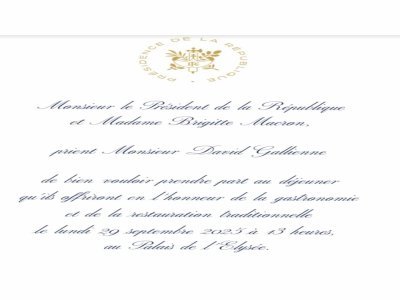 PRÉSIDENCE DE LA RÉPUBLIQUE
Monsieur le Président de la République
et Madame Brigitte Macron,
prient Monsieur David Gallienne
de bien vouloir prendre part au déjeuner
qu'ils offriront en l'honneur de la gastronomie
et de la restauration traditionnelle
le lundi 29 septembre 2025 à 13 heures,
au Palais de l'Elysée.